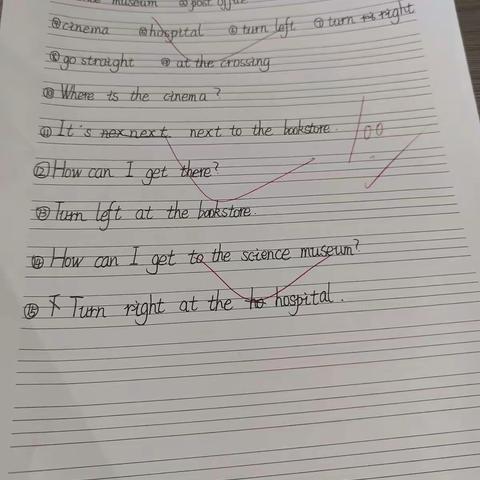 museum ⑤post office
⑥cinema ⑦hospital ⑧turn left ⑦turn right
go straight at the crossing
⑩Where is the cinema?
⑪It's next to the bookstore.
⑫How can I get there?
⑬Turn left at the bookstore.
⑭How can I get to the science museum?
⑮Turn right at the hospital.
100